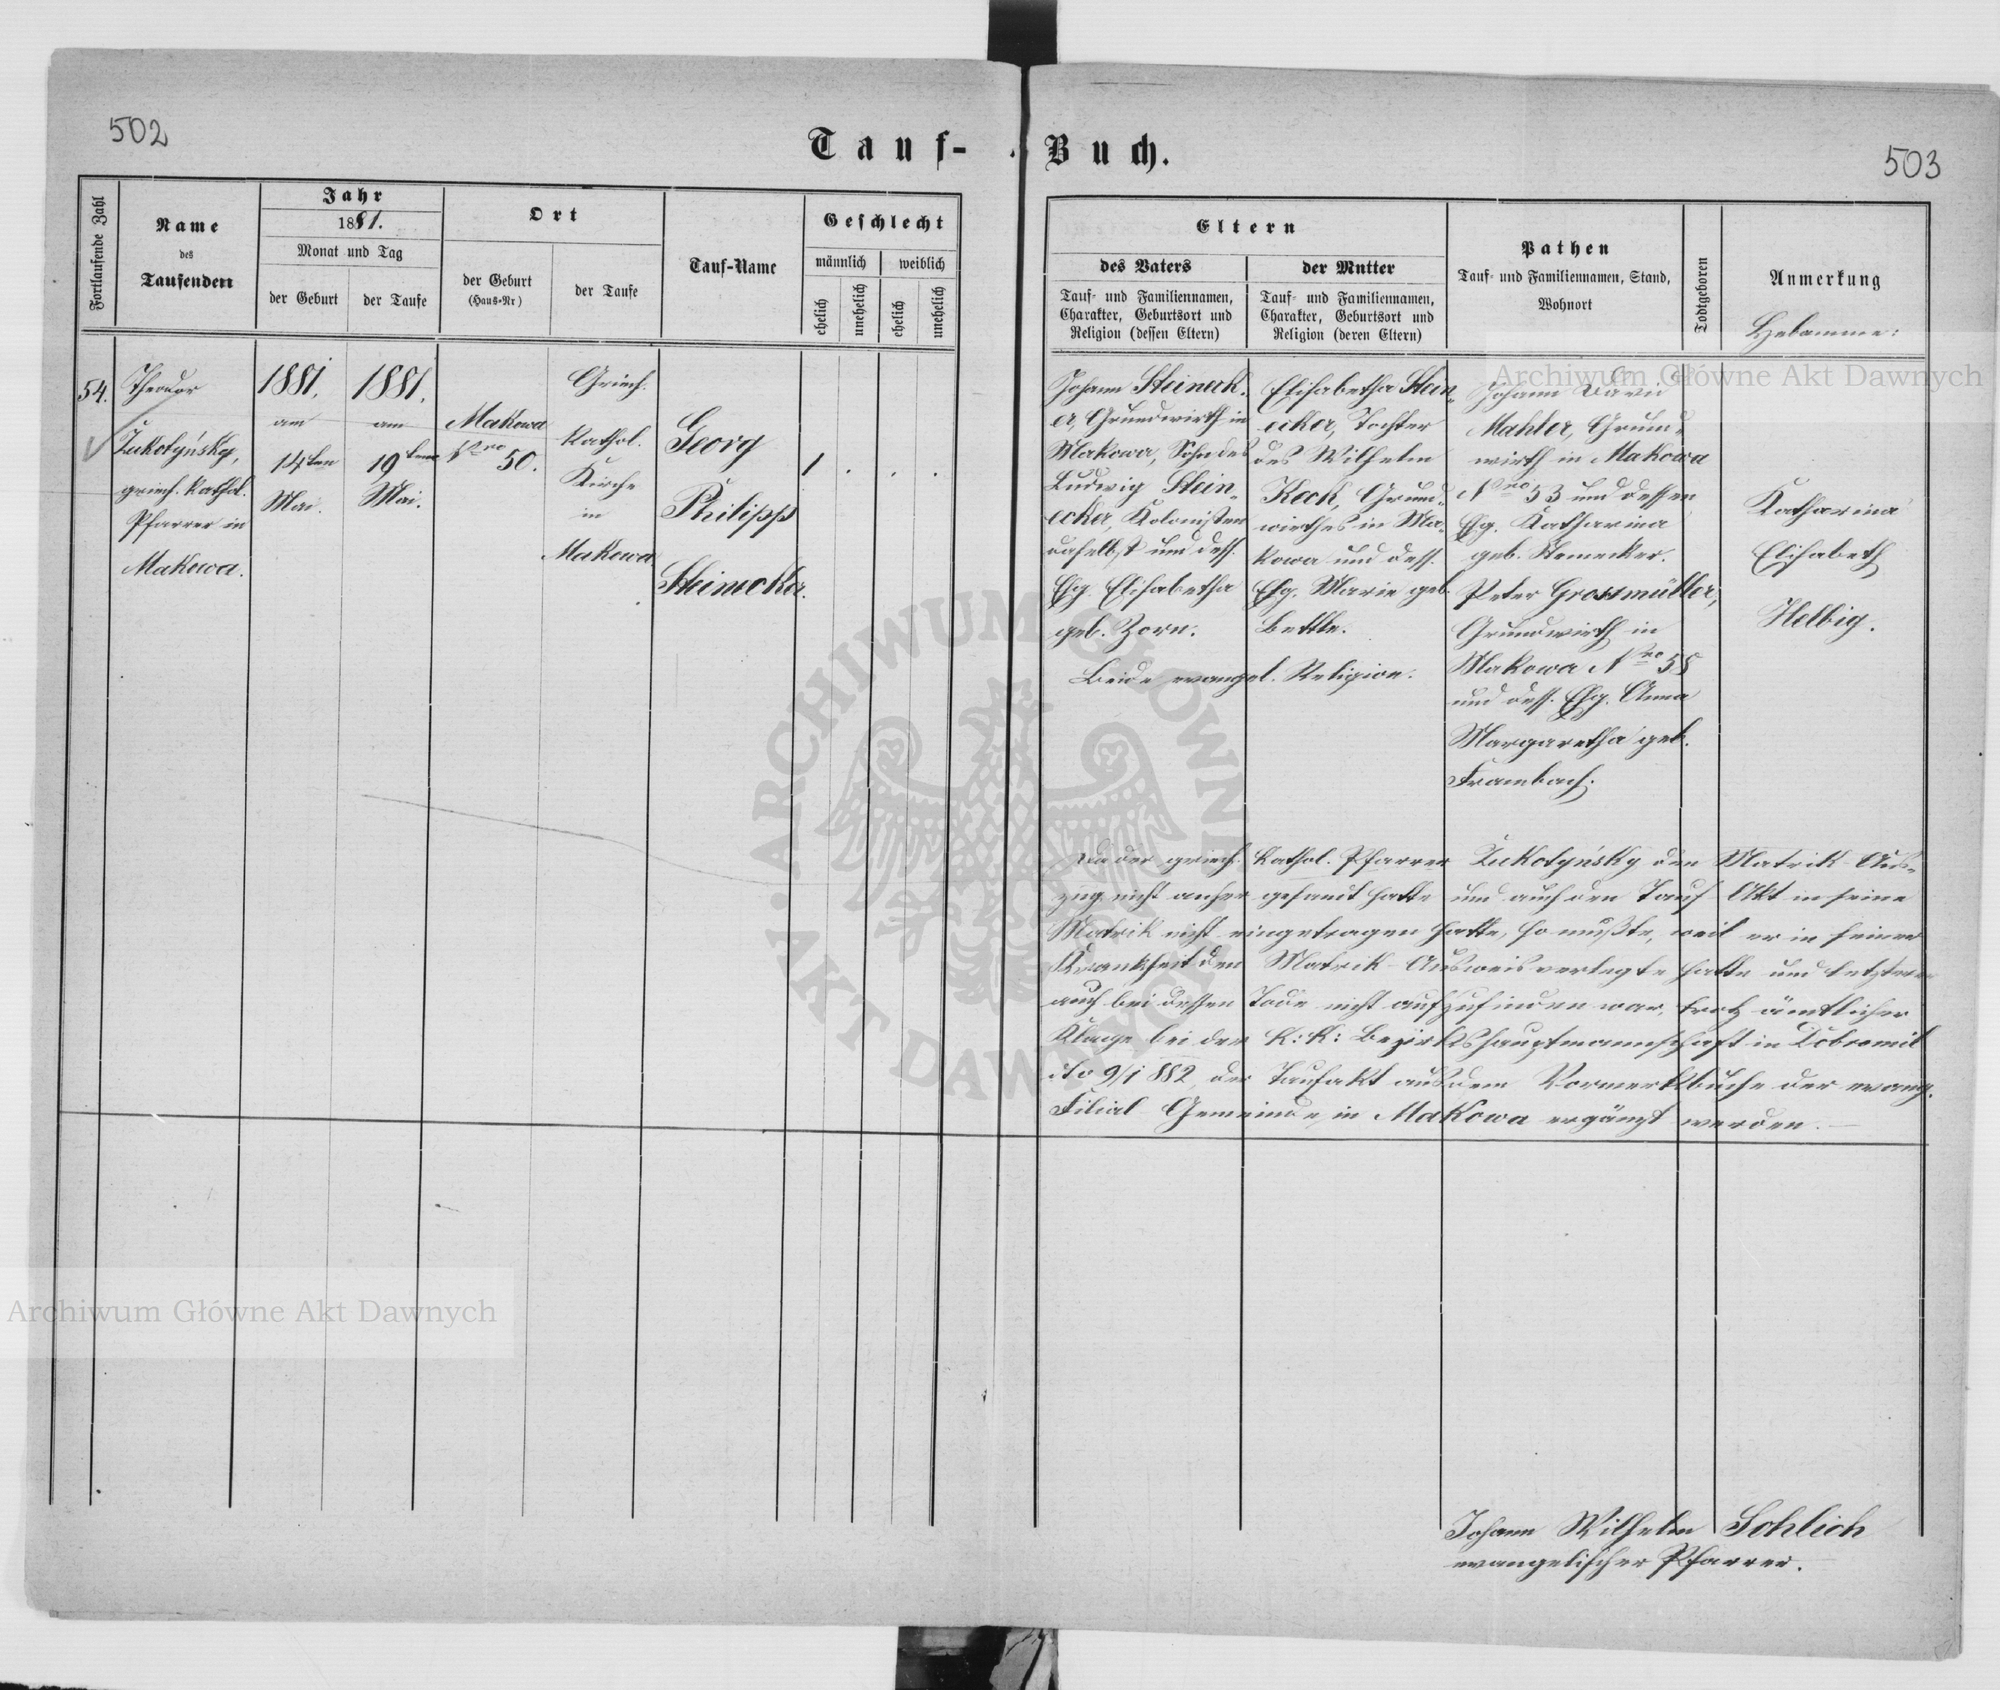 502
Tauf-
Buch.
503
Fortlaufende Zahl
Name
des
Taufenden
Jahr
1881.
Monat und Tag
der Geburt
der Taufe
Ort
der Geburt
(Haus-Nr)
der Taufe
Tauf-Name
Geschlecht
männlich
weiblich
ehelich
unehelich
ehelich
unehelich
Eltern
des Vaters
der Mutter
Tauf- und Familiennamen,
Charakter, Geburtsort und
Religion (dessen Eltern)
Tauf- und Familiennamen,
Charakter, Geburtsort und
Religion (deren Eltern)
Pathen
Tauf- und Familiennamen, Stand,
Wohnort
Todtgeboren
Anmerkung
Hebamme:
54.
Theodor
Żukotyńsky,
griech. kathol.
Pfarrer in
Makowa.
1881.
am
14ten
Mai.
1881.
am
19ten
Mai.
Makowa
Nro 50.
Griech.
kathol.
Kirche
in
Makowa
Georg
Philipp
Steinecker.
1
.
.
.
Johann Steineck-
er, Grundwirth in
Makowa, Sohn des
Ludwig Stein-
ecker, Kolonisten
daselbst und dess.
Ehg. Elisabetha
geb. Zorn.
Elisabetha Stein-
ecker, Tochter
des Wilhelm
Keck, Grund-
wirthes in Ma-
kowa und dess.
Ehg. Marie geb.
Bettle.
Beide evangel. Religion.
Johann David
Mahler, Grund-
wirth in Makowa
Nro 53 und dessen
Ehg. Katharina
geb. Steinecker.
Peter Grossmüller,
Grundwirth in
Makowa Nro 58
und dess. Ehg. Anna
Margaretha geb.
Frambach.
Katharina
Elisabeth
Helbig.
Da der griech. kathol. Pfarrer Żukotyńsky den Matrik-Aus-
zug nicht anher gesandt hatte und auch den Tauf-Akt in seine
Matrik nicht eingetragen hatte, so mußte, weil er in seiner
Krankheit den Matrik-Ausweis verlegte hatte und letzterer
auch bei dessen Tode nicht aufzufinden war, trotz ämtlicher
Klage bei der K: K: Bezirkshauptmannschaft in Dobromil
dto 9/1 882, der Taufakt aus dem Vormerkbuche der evang.
Filial-Gemeinde in Makowa ergänzt werden.
Johann Wilhelm Sohlich
evangelischer Pfarrer.
Archiwum Główne Akt Dawnych
Archiwum Główne Akt Dawnych
ARCHIWUM GŁÓWNE
AKT DAWNYCH